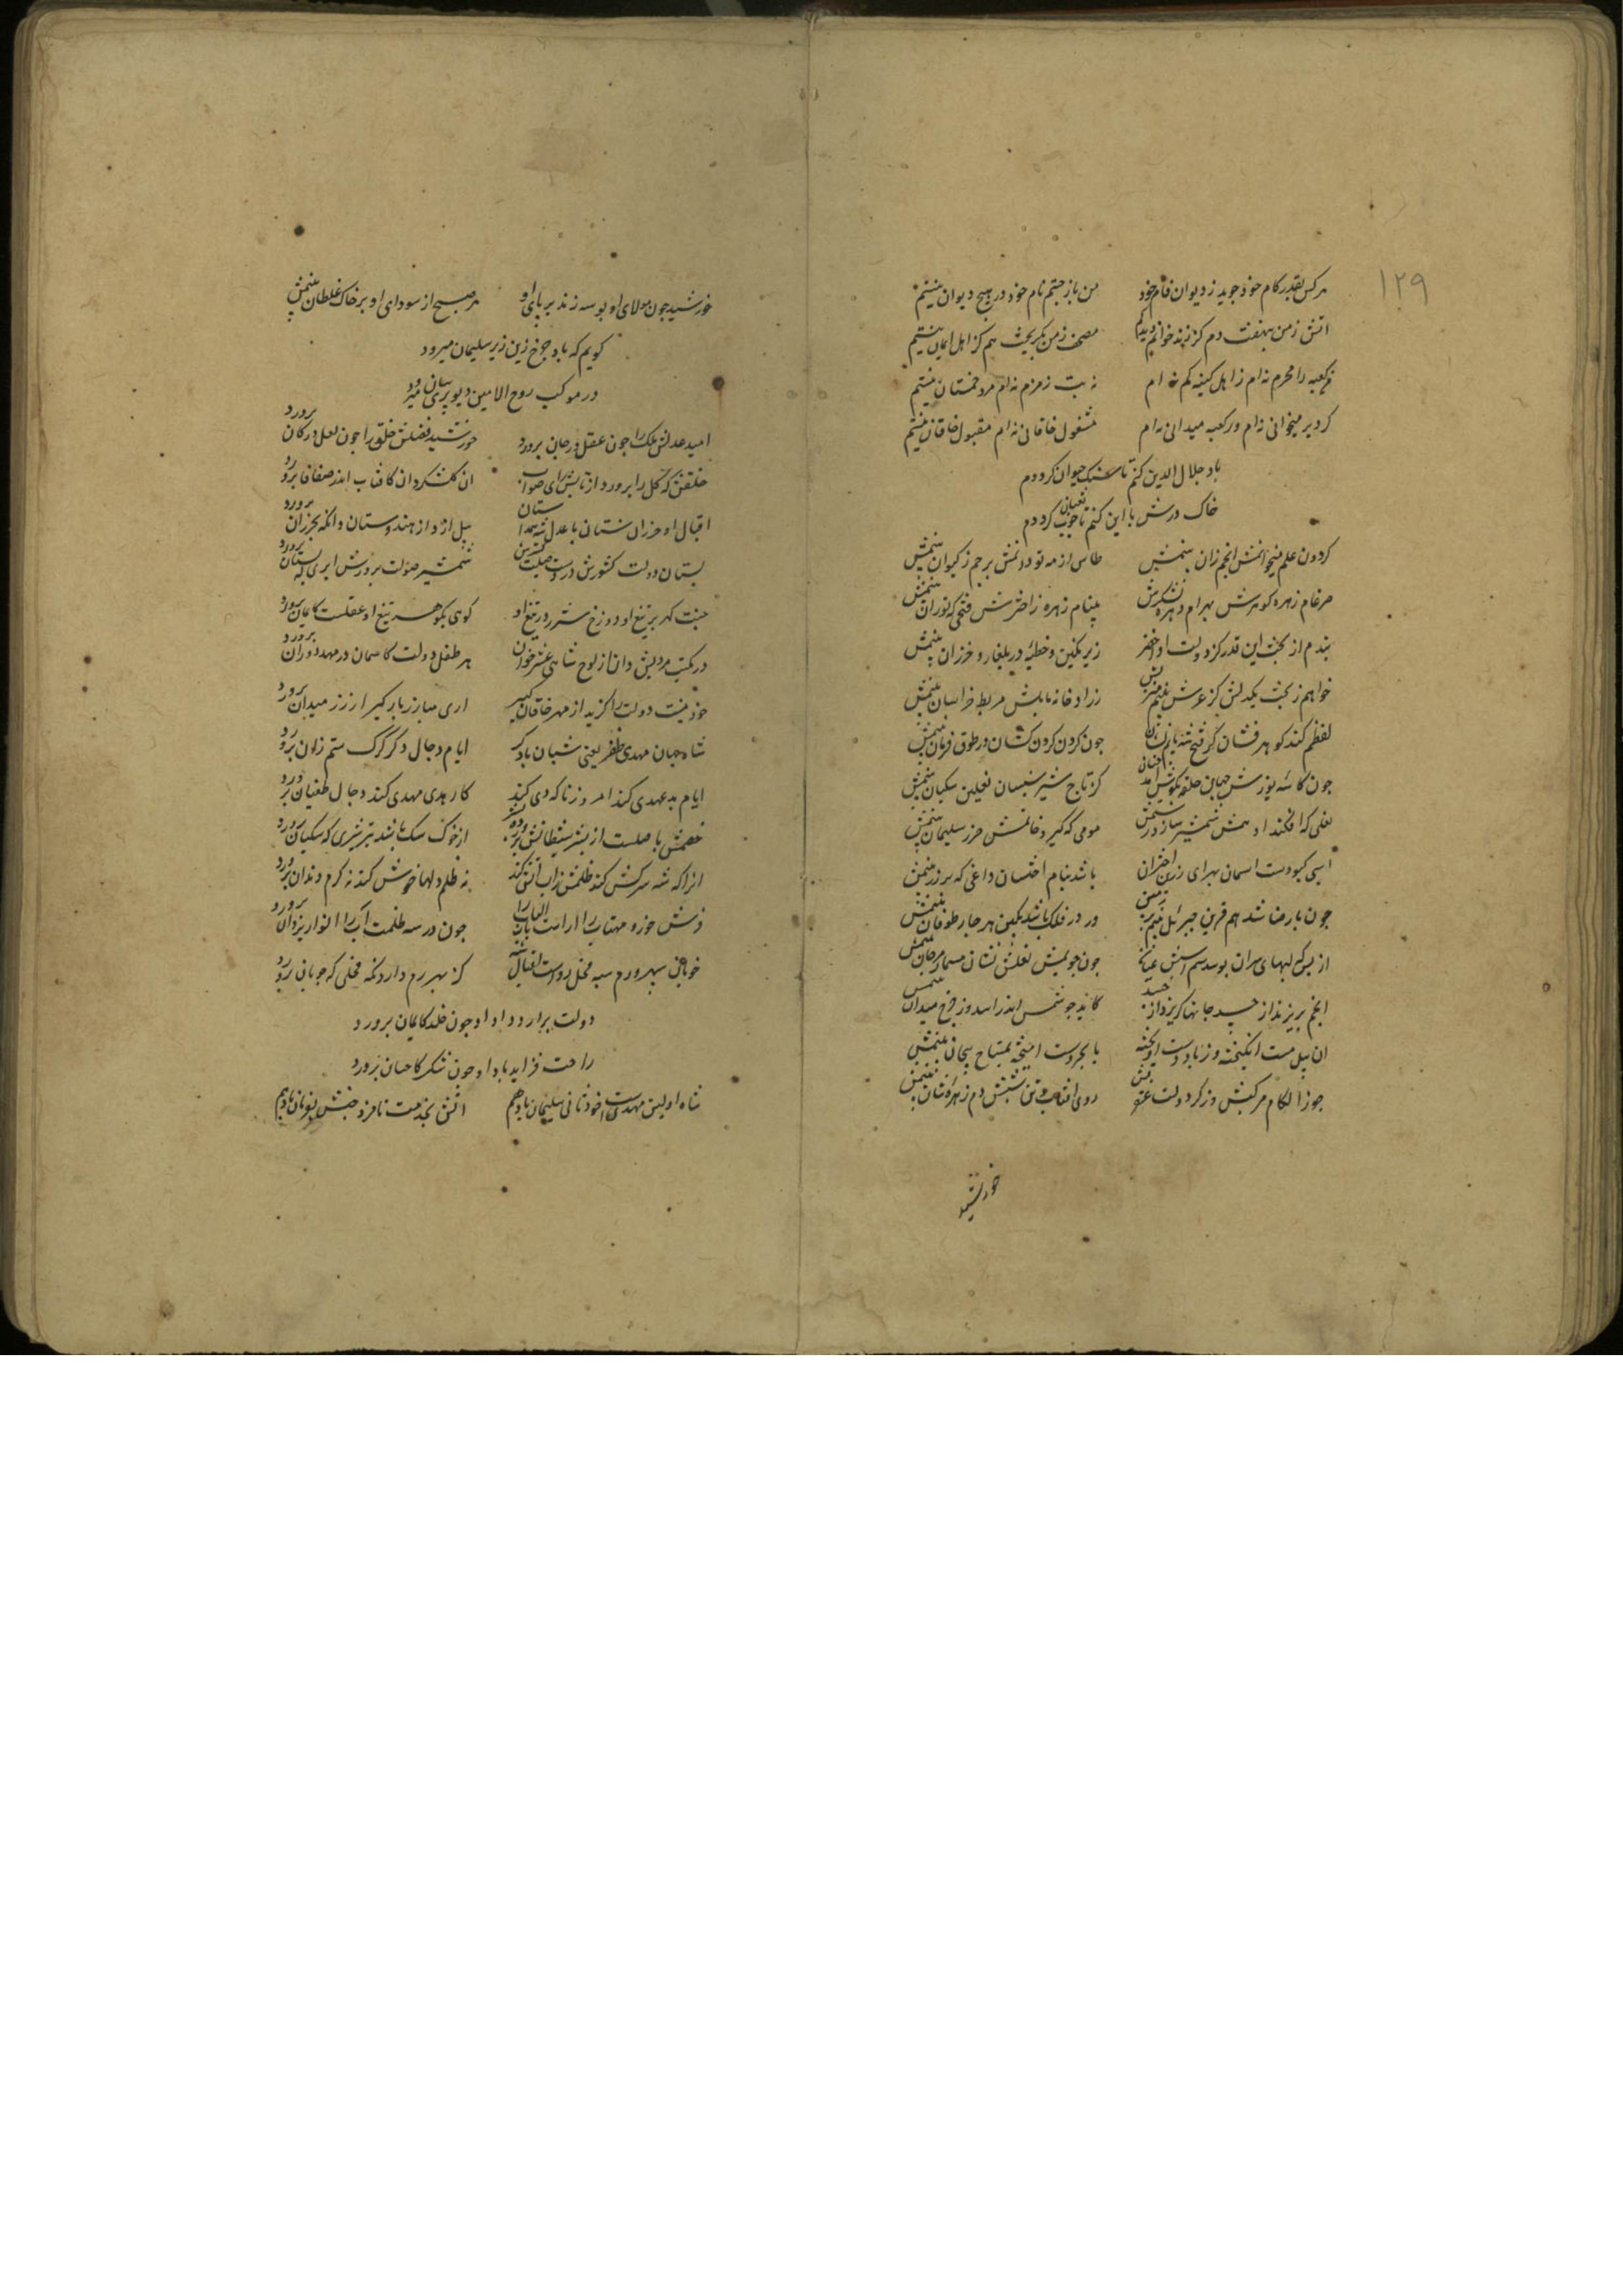 ۱۲۹
هر کس بقدر کام خود جوید ز دیوان نام خود من باز جستم نام خود در هیچ دیوان نیستم
آتش ز من بنهفت دم کز زند خوانم دید کم مصحف ز من بگریخت هم کز اهل ایمان نیستم
نه کعبه را محرم نه‌ام ز اهل کنیسه کم نه‌ام نه بت زمزم نه‌ام مرد خمستان نیستم
کر دیر میخوانی نه‌ام ور کعبه میدانی نه‌ام مشغول خاقانی نه‌ام مقبول خاقان نیستم
باد جلال الدین کنم تا سنک حیوان کرددم
خاک درش با این کنم تا چوب ثعبان کرددم
کردون علم میخوانمش انجم زان بینمش طاس از مه نو دانمش پرچم ز کیوان بینمش
ضرغام زهره کوهرش بهرام دهره پیکرش پنام زهره ز اخترش فتحی که توران بینمش
بندم از بخت این قدر کز دولت او زیر نکین و خطبه در بلغار و خزران بینمش
خواهم ز بخت یکدلش کز عرش بینم منزلش زراد خانه بابلش مربط خراسان بینمش
لفظم کند کوهر فشان کز فتح شه یابم نشان چون کردن کردن کشان در طوق فرمان بینمش
چون کاسه یوزش جهان حلقه بکوش آمد کز تاج شیر سیستان نعلین سکبان بینمش
نعلی که افکند ادهمش شمشیر سازد رستمش مومی که کیرد خاتمش حرز سلیمان بینمش
اسبی کبودست آسمان بهرای زرین اختران باشد بنام اخستان داغی که بر ران بینمش
چون بارضا شد هم قرین جبرئیل بینم بر زمین ور در فلک باشد بکین هر چار طوفان بینمش
از بس که لبهای سران بوسد سم اسبش عیان چون جوئیش نعلش نشان مسمار مرجان بینمش
انجم بریزند از حسد جانها کریزد از جسد کاید چو شمس اندر اسد وز چرخ میدان بینمش
آن پیل مست انکیخته وز باد دست آویخته با بحر دست آمیخته تمساح پیچان بینمش
جوزا لکام مرکبش وز کرد دولت روی آفتاب و تن شبش دم زهره‌شان بینمش
خورشید
خورشید چون مولای او بوسه زند بر پای او هر صبح از سودای او بر خاک غلطان بینمش
کویم که باد چرخ زین زیر سلیمان میرود
در موکب روح الامین دیو پری سان میرود
امید عدلش ملک را چون عقل در جان پرورد خورشید فضلش خلق را چون لعل در کان پرورد
خلقش که کل را پرورد از تابش رای صواب آن کلشکر دان کافتاب اندر صفاقان پرورد
اقبال او خزران ستان با عدل شه همداستان پیل آرد از هندوستان وانکه بخزران پرورد
بستان دولت کشورش در دست شمشیر صولت پرورش ابری که بستان پرورد
جنت کهر بر تیغ او دوزخ شرر در تیغ او کوی بکوهر تیغ او عقلست کایمان پرورد
در مکتب مردیش دان از لوح شاهی عشر خوان هر طفل دولت کاسمان در مهد دوران پرورد
خود نیت دولت را کزید از مهر خاقان آری مبارز بارکیر از رز میدان پرورد
شاه جهان مهدی ظفر یعنی شبان دادکر ایام دجال دکر کرک ستم زان پرورد
ایام بد عهدی کند امروز ناکه دی کند کار بدی مهدی کند دجال طغیان پرورد
خصمش با صلست از بشر شیطانش پرورده از خوک سک باشد بتر شیری که سکبان پرورد
آنرا که شه سرکش کند ظلمش ز آب آتش کند نه ظلم دلها خوش کند نه کرم دندان پرورد
چون در سه ظلمت آب را انوار یزدان پرورد
کز بهر رم دارد نکه فحلی که چوپان پرورد
دولت برآرد داد او چون خلد کایمان پرورد
راحت فزاید یاد او چون شکر کاحسان پرورد
شاه اولین مهدیست خود ثانی سلیمان باد هم انسش بخدمت نامزد جنش بفرمان باد هم